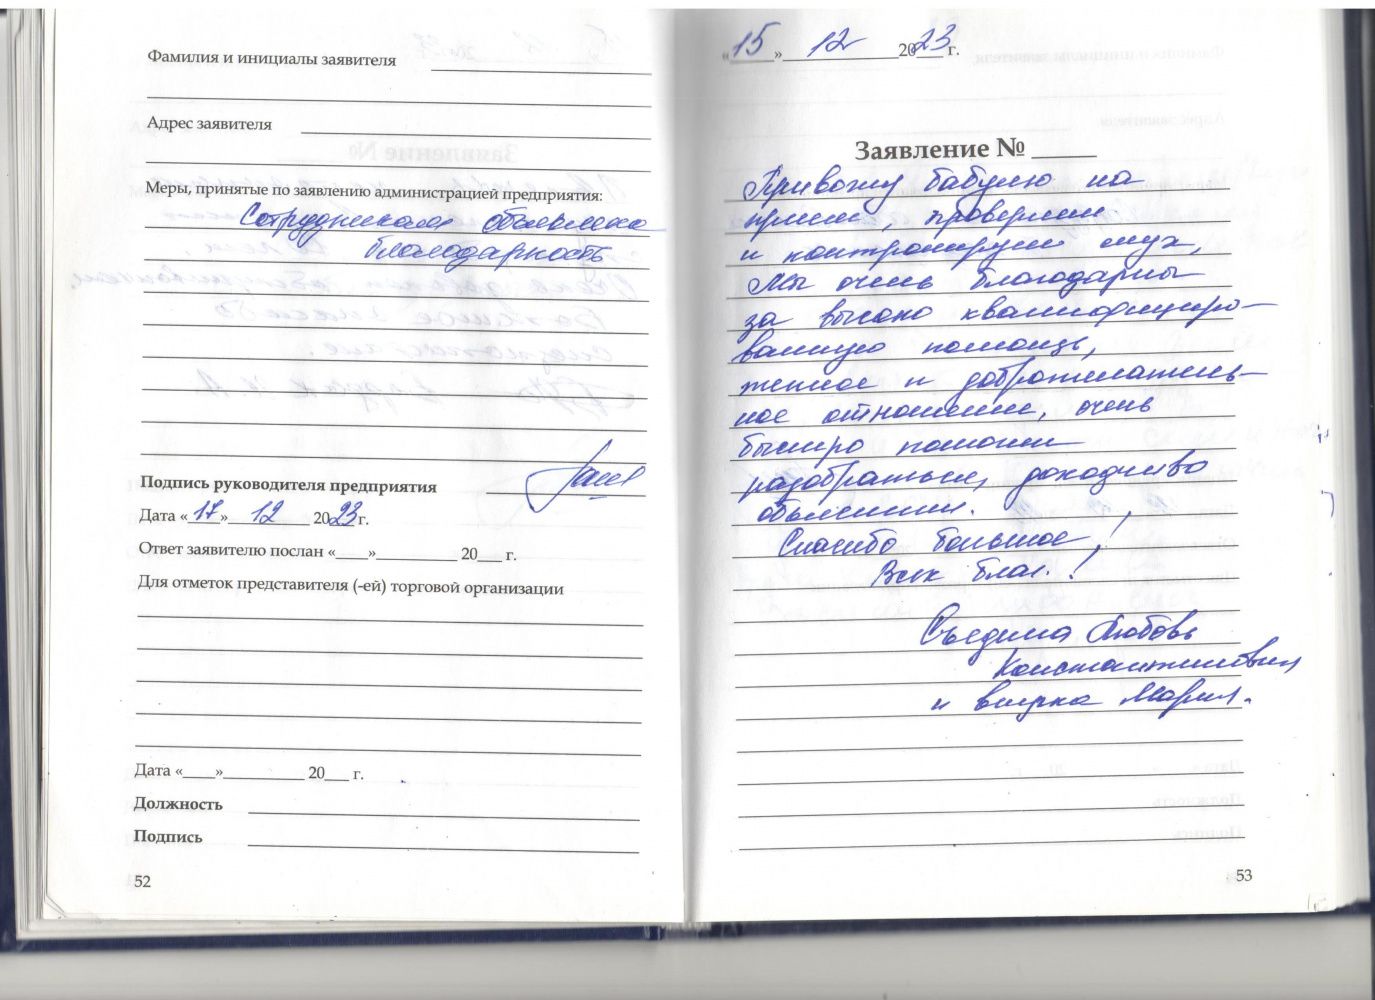 Фамилия и инициалы заявителя
Адрес заявителя
Меры, принятые по заявлению администрацией предприятия:
Сотрудникам объявлена
благодарность
Подпись руководителя предприятия
Дата «17» 12 2023 г.
Ответ заявителю послан «____»__________ 20___ г.
Для отметок представителя (-ей) торговой организации
Дата «____»__________ 20___ г.
Должность
Подпись
52
«15» 12 2023 г.
Заявление № _____
Привожу бабулю на
прием, проверяем
и контролируем слух,
Мы очень благодарны
за высоко квалифициро-
ванную помощь,
и доброжелатель-
ное отношение, очень
быстро помогли
разобраться, доходчиво
объяснили.
Спасибо большое!
Всех благ.!
Съедина Любовь
Константиновна
и внучка Мария.
53